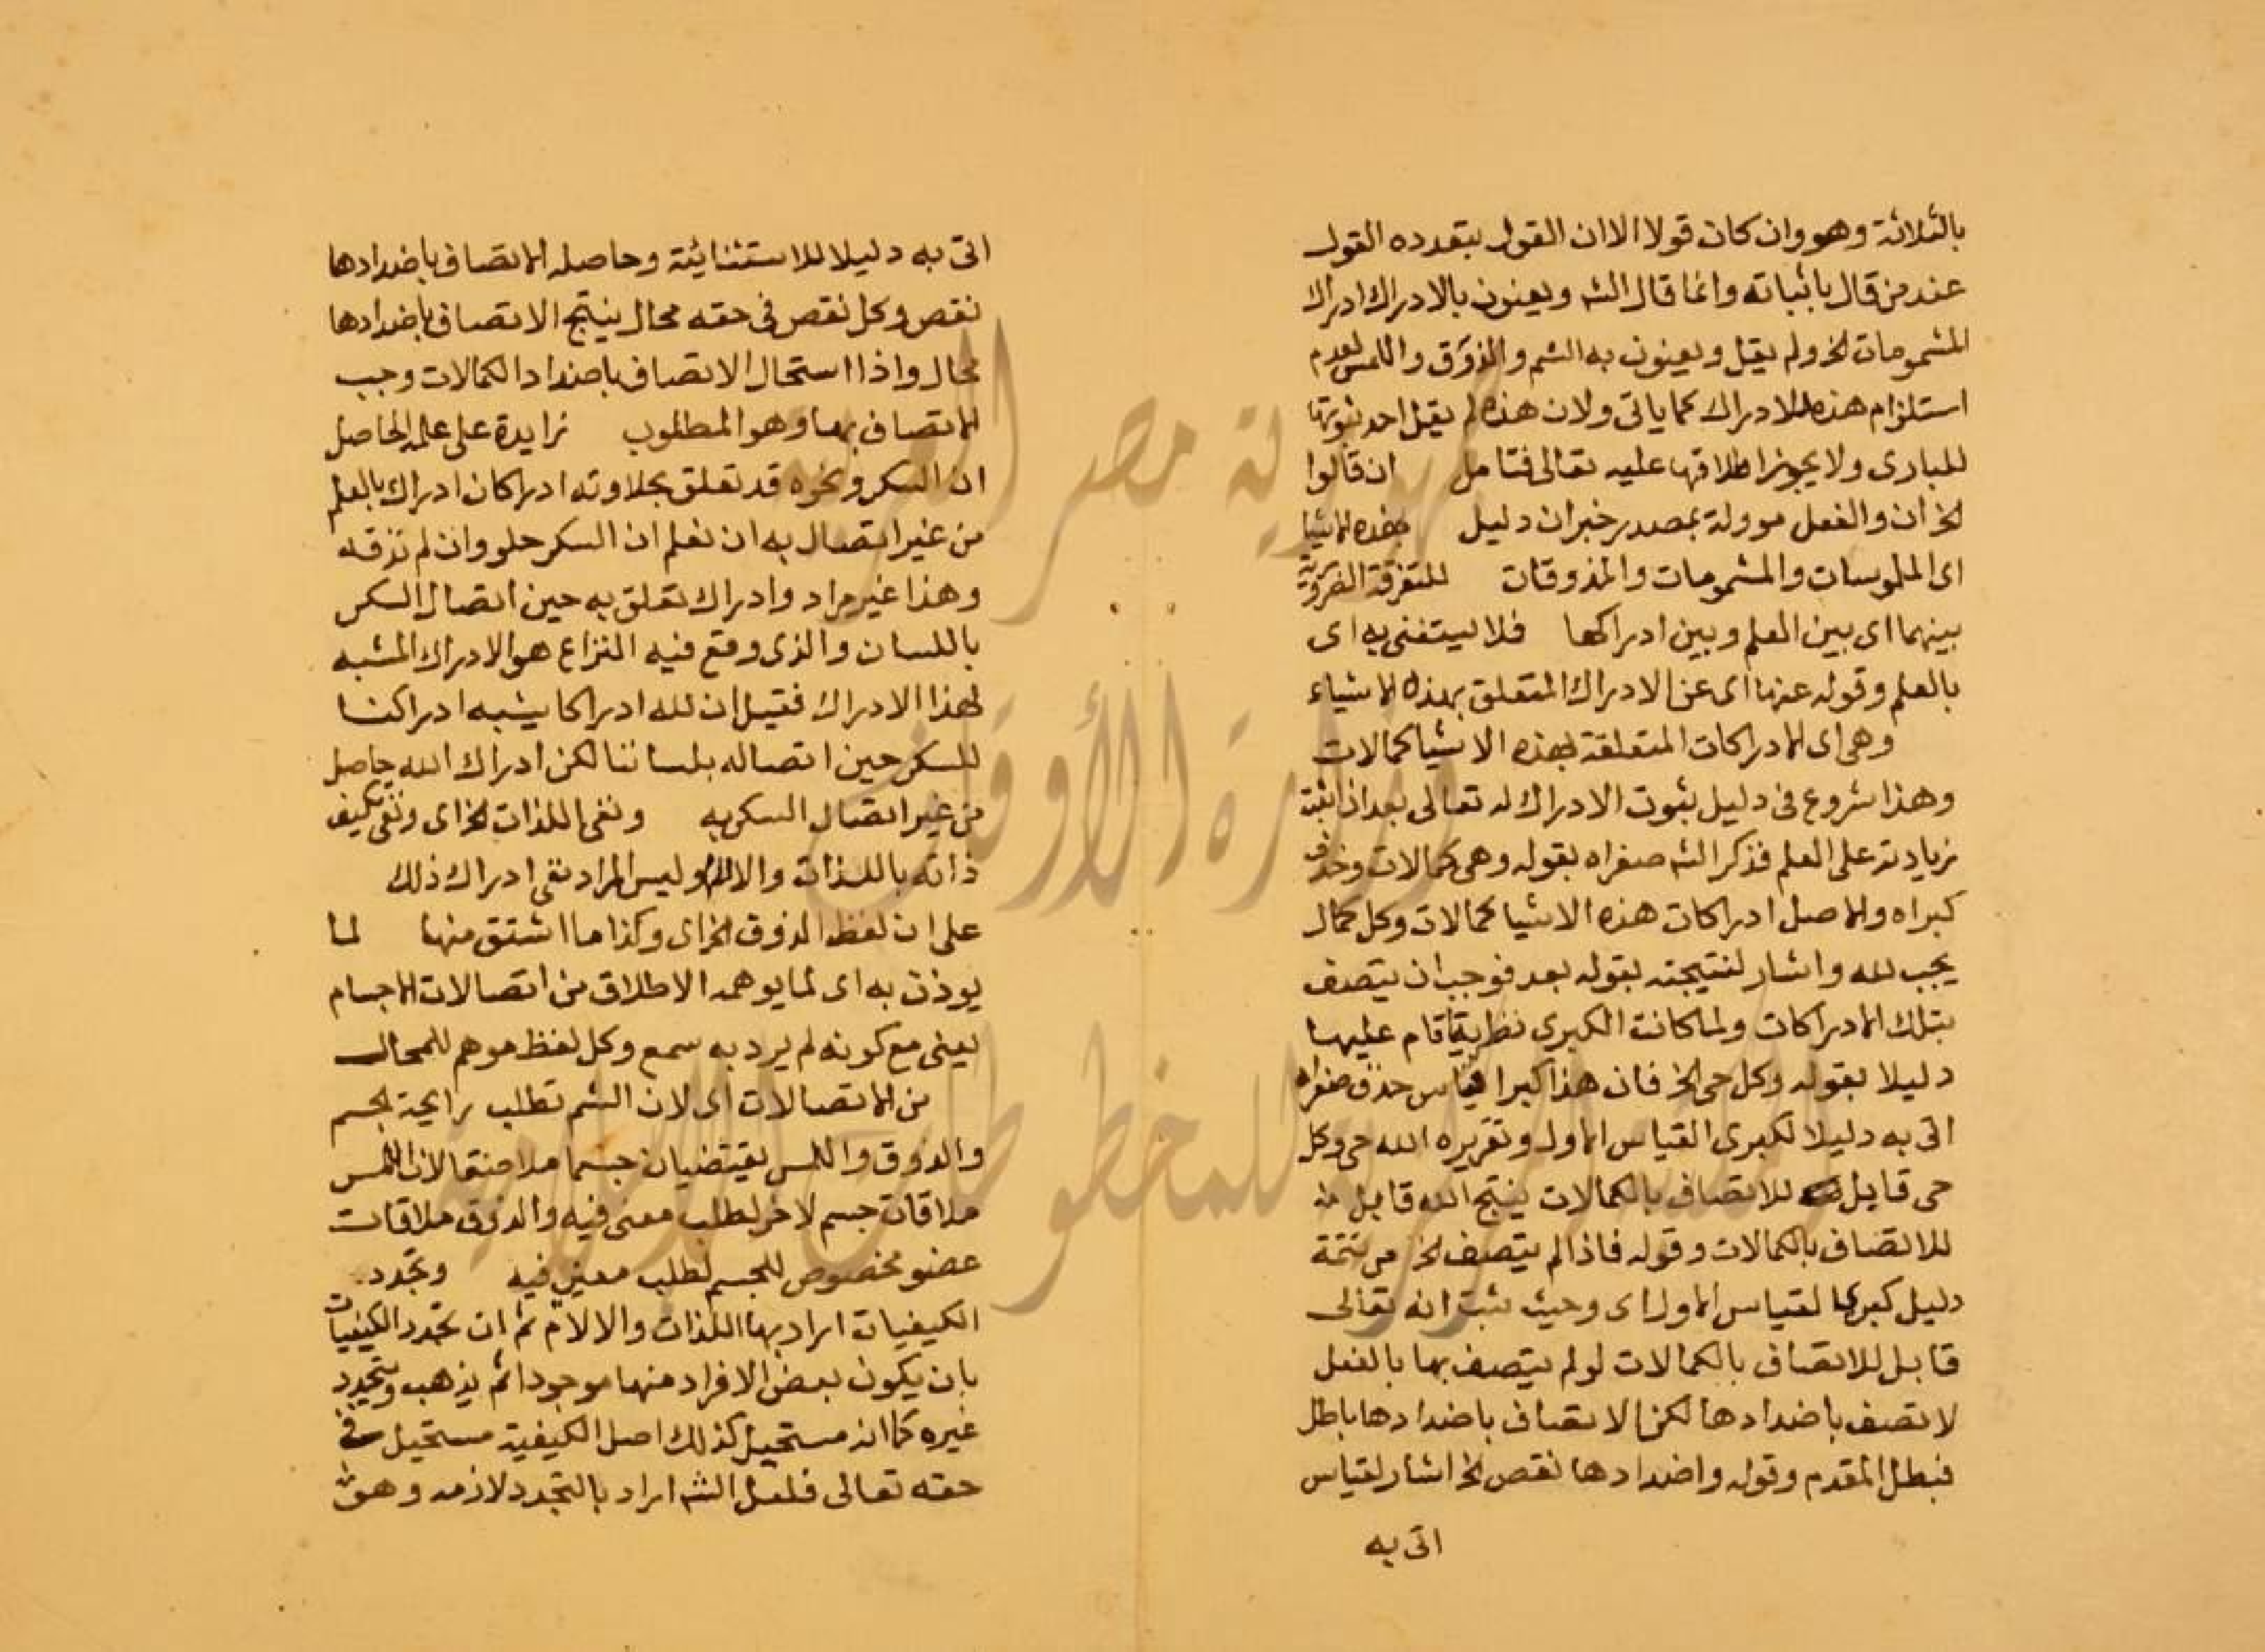 بالثلاثة وهو وان كان قولا الا ان القول بتعدده القول
عند من قال باثباته وانما قال الشه ويعنون بالادراك ادراك
المشمومات الخ ولم يقل ويعنون به الشم والذوق واللمس لعدم
استلزام هذه للادراك كما ياتى ولان هذه لم يقل احد بثبوتها
للبارى ولا يجوز اطلاقها عليه تعالى فتامل ان قالوا
الخ ان والفعل موولة بمصدر خبر ان دليل بهذه الاشيا
اى الملموسات والمشمومات والمذوقات للتفرقة الضرورية
بينهما اى بين العلم وبين ادراكها فلا يستغنى به اى
بالعلم وقوله عنها اى عن الادراك المتعلق بهذه الاشياء
وهى اى الادراكات المتعلقة بهذه الاشيا كمالات
وهذا شروع فى دليل ثبوت الادراك له تعالى بعد ان اثبت
زيادته على العلم فذكر الشه صغراه بقوله وهى كمالات وحذف
كبراه والاصل ادراكات هذه الاشيا كمالات وكل كمال
يجب لله واشار لنتيجته بقوله بعد فوجب ان يتصف
بتلك الادراكات ولما كانت الكبرى نظرية اقام عليها
دليلا بقوله وكل حى الخ فان هذا كبرا قياس حذف صغراه
اتى به دليلا لكبرى القياس الاول وتقريره الله حى وكل
حى قابل للاتصاف بالكمالات ينتج الله قابل
للاتصاف بالكمالات وقوله فاذا لم يتصف الخ من تتمة
دليل كبرى القياس الاول اى وحيث ثبت انه تعالى
قابل للاتصاف بالكمالات لو لم يتصف بها بالفعل
لاتصف باضدادها لكن الاتصاف باضدادها باطل
فبطل المقدم وقوله واضدادها نقص الخ اشار لقياس
اتى به
اتى به دليلا للاستثنائية وحاصله الاتصاف باضدادها
نقص وكل نقص فى حقه محال ينتج الاتصاف باضدادها
محال واذا استحال الاتصاف باضداد الكمالات وجب
الاتصاف بها وهو المطلوب زايدة على علمه الحاصل
ان السكر ونحوه قد تعلق بحلاوته ادراكان ادراك بالعلم
من غير اتصال به ان نعلم ان السكر حلو وان لم نذقه
وهذا غير مراد وادراك تعلق به حين اتصال السكر
باللسان والذى وقع فيه النزاع هو الادراك المشبه
لهذا الادراك فقيل ان لله ادراكا يشبه ادراكنا
للسكر حين اتصاله بلساننا لكن ادراك الله حاصل
من غير اتصال السكر به ونفى اللذات الخ اى ونفى تكيف
ذاته باللذات والالام وليس المراد نفى ادراك ذلك
على ان لفظ الذوق الخ اى وكذا ما اشتق منها لما
يوذن به اى لما يوهمه الاطلاق من اتصالات الاجسام
يعنى مع كونه لم يرد به سمع وكل لفظ موهم للمحال
من الاتصالات اى لان الشم تطلب رايحة لجسم
والذوق واللمس يقتضيان جسما ملاصقا لان اللمس
ملاقات جسم لاخر لطلب معنى فيه والذوق ملاقات
عضو مخصوص للجسم لطلب معنى فيه وتجدد
الكيفيات اراد بها اللذات والالام ثم ان تجدد الكيفيات
بان يكون بعض الافراد منها موجودا ثم يذهب ويتجدد
غيره كما انه مستحيل كذلك اصل الكيفية مستحيل فى
حقه تعالى فلعل الشه اراد بالتجدد لازمه وهو
جمهورية مصر العربية
وزارة الأوقاف
المكتبة المركزية للمخطوطات الإسلامية